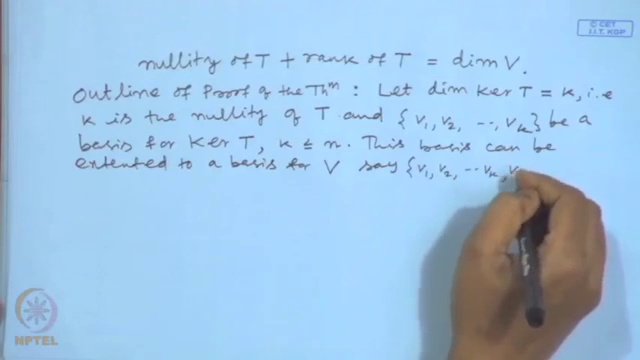 © CET
I.I.T. KGP
nullity of T + rank of T = dim V.
Outline of Proof of the Thm : Let dim Ker T = k, i.e
k is the nullity of T and {v1, v2, ---, vk} be a
basis for Ker T, k ≤ n. This basis can be
extented to a basis for V say {v1, v2, -- vk, v
NPTEL